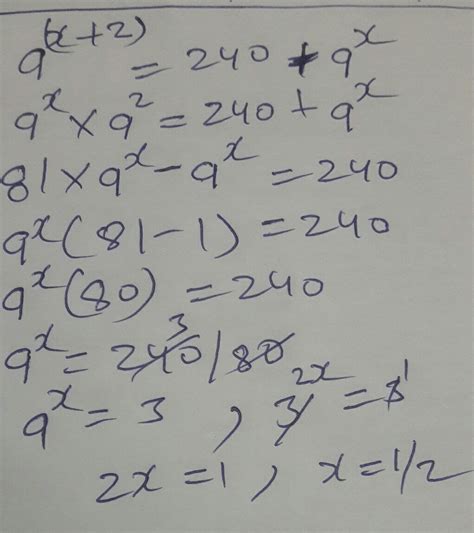 9^(x+2) = 240 + 9^x
9^x × 9^2 = 240 + 9^x
81 × 9^x - 9^x = 240
9^x (81 - 1) = 240
9^x (80) = 240
9^x = 240/80 3
9^x = 3 , 3^2x = 3^1
2x = 1 , x = 1/2